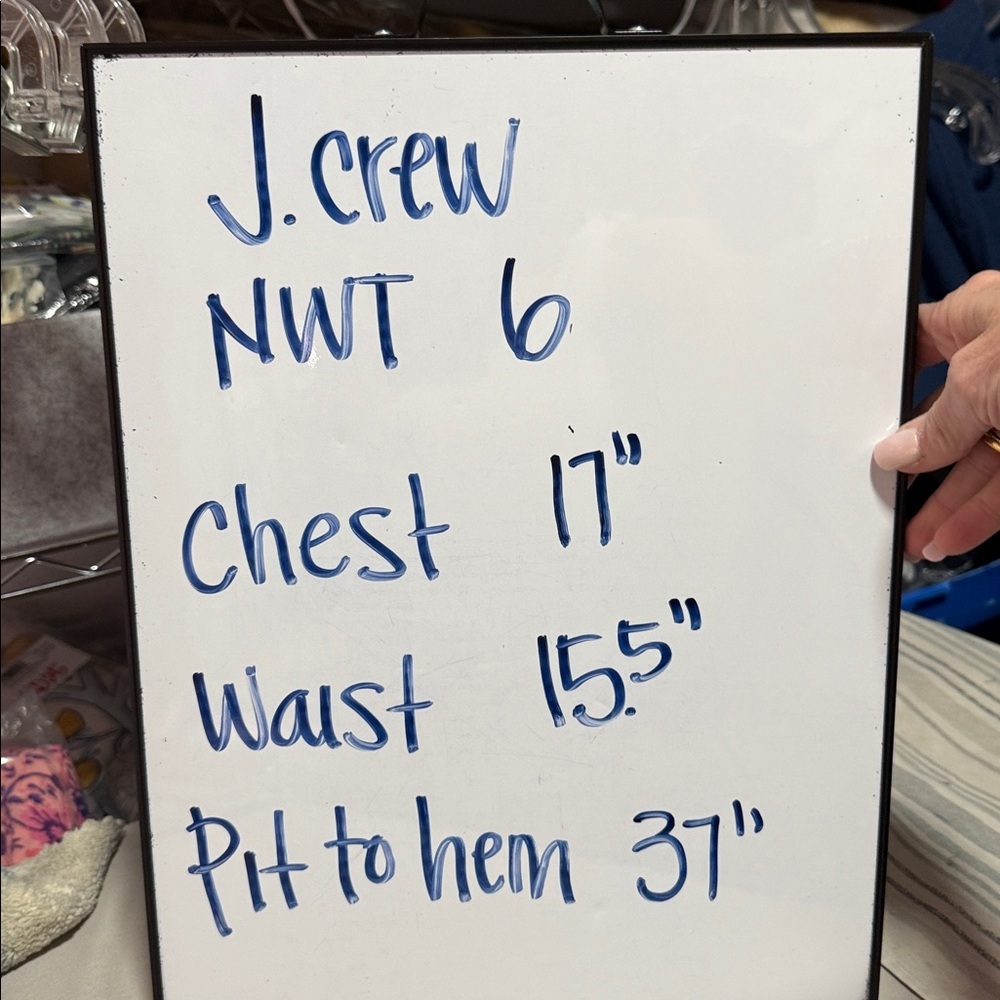 J. Crew
NWT 6
Chest 17"
Waist 15.5"
Pit to hem 37"